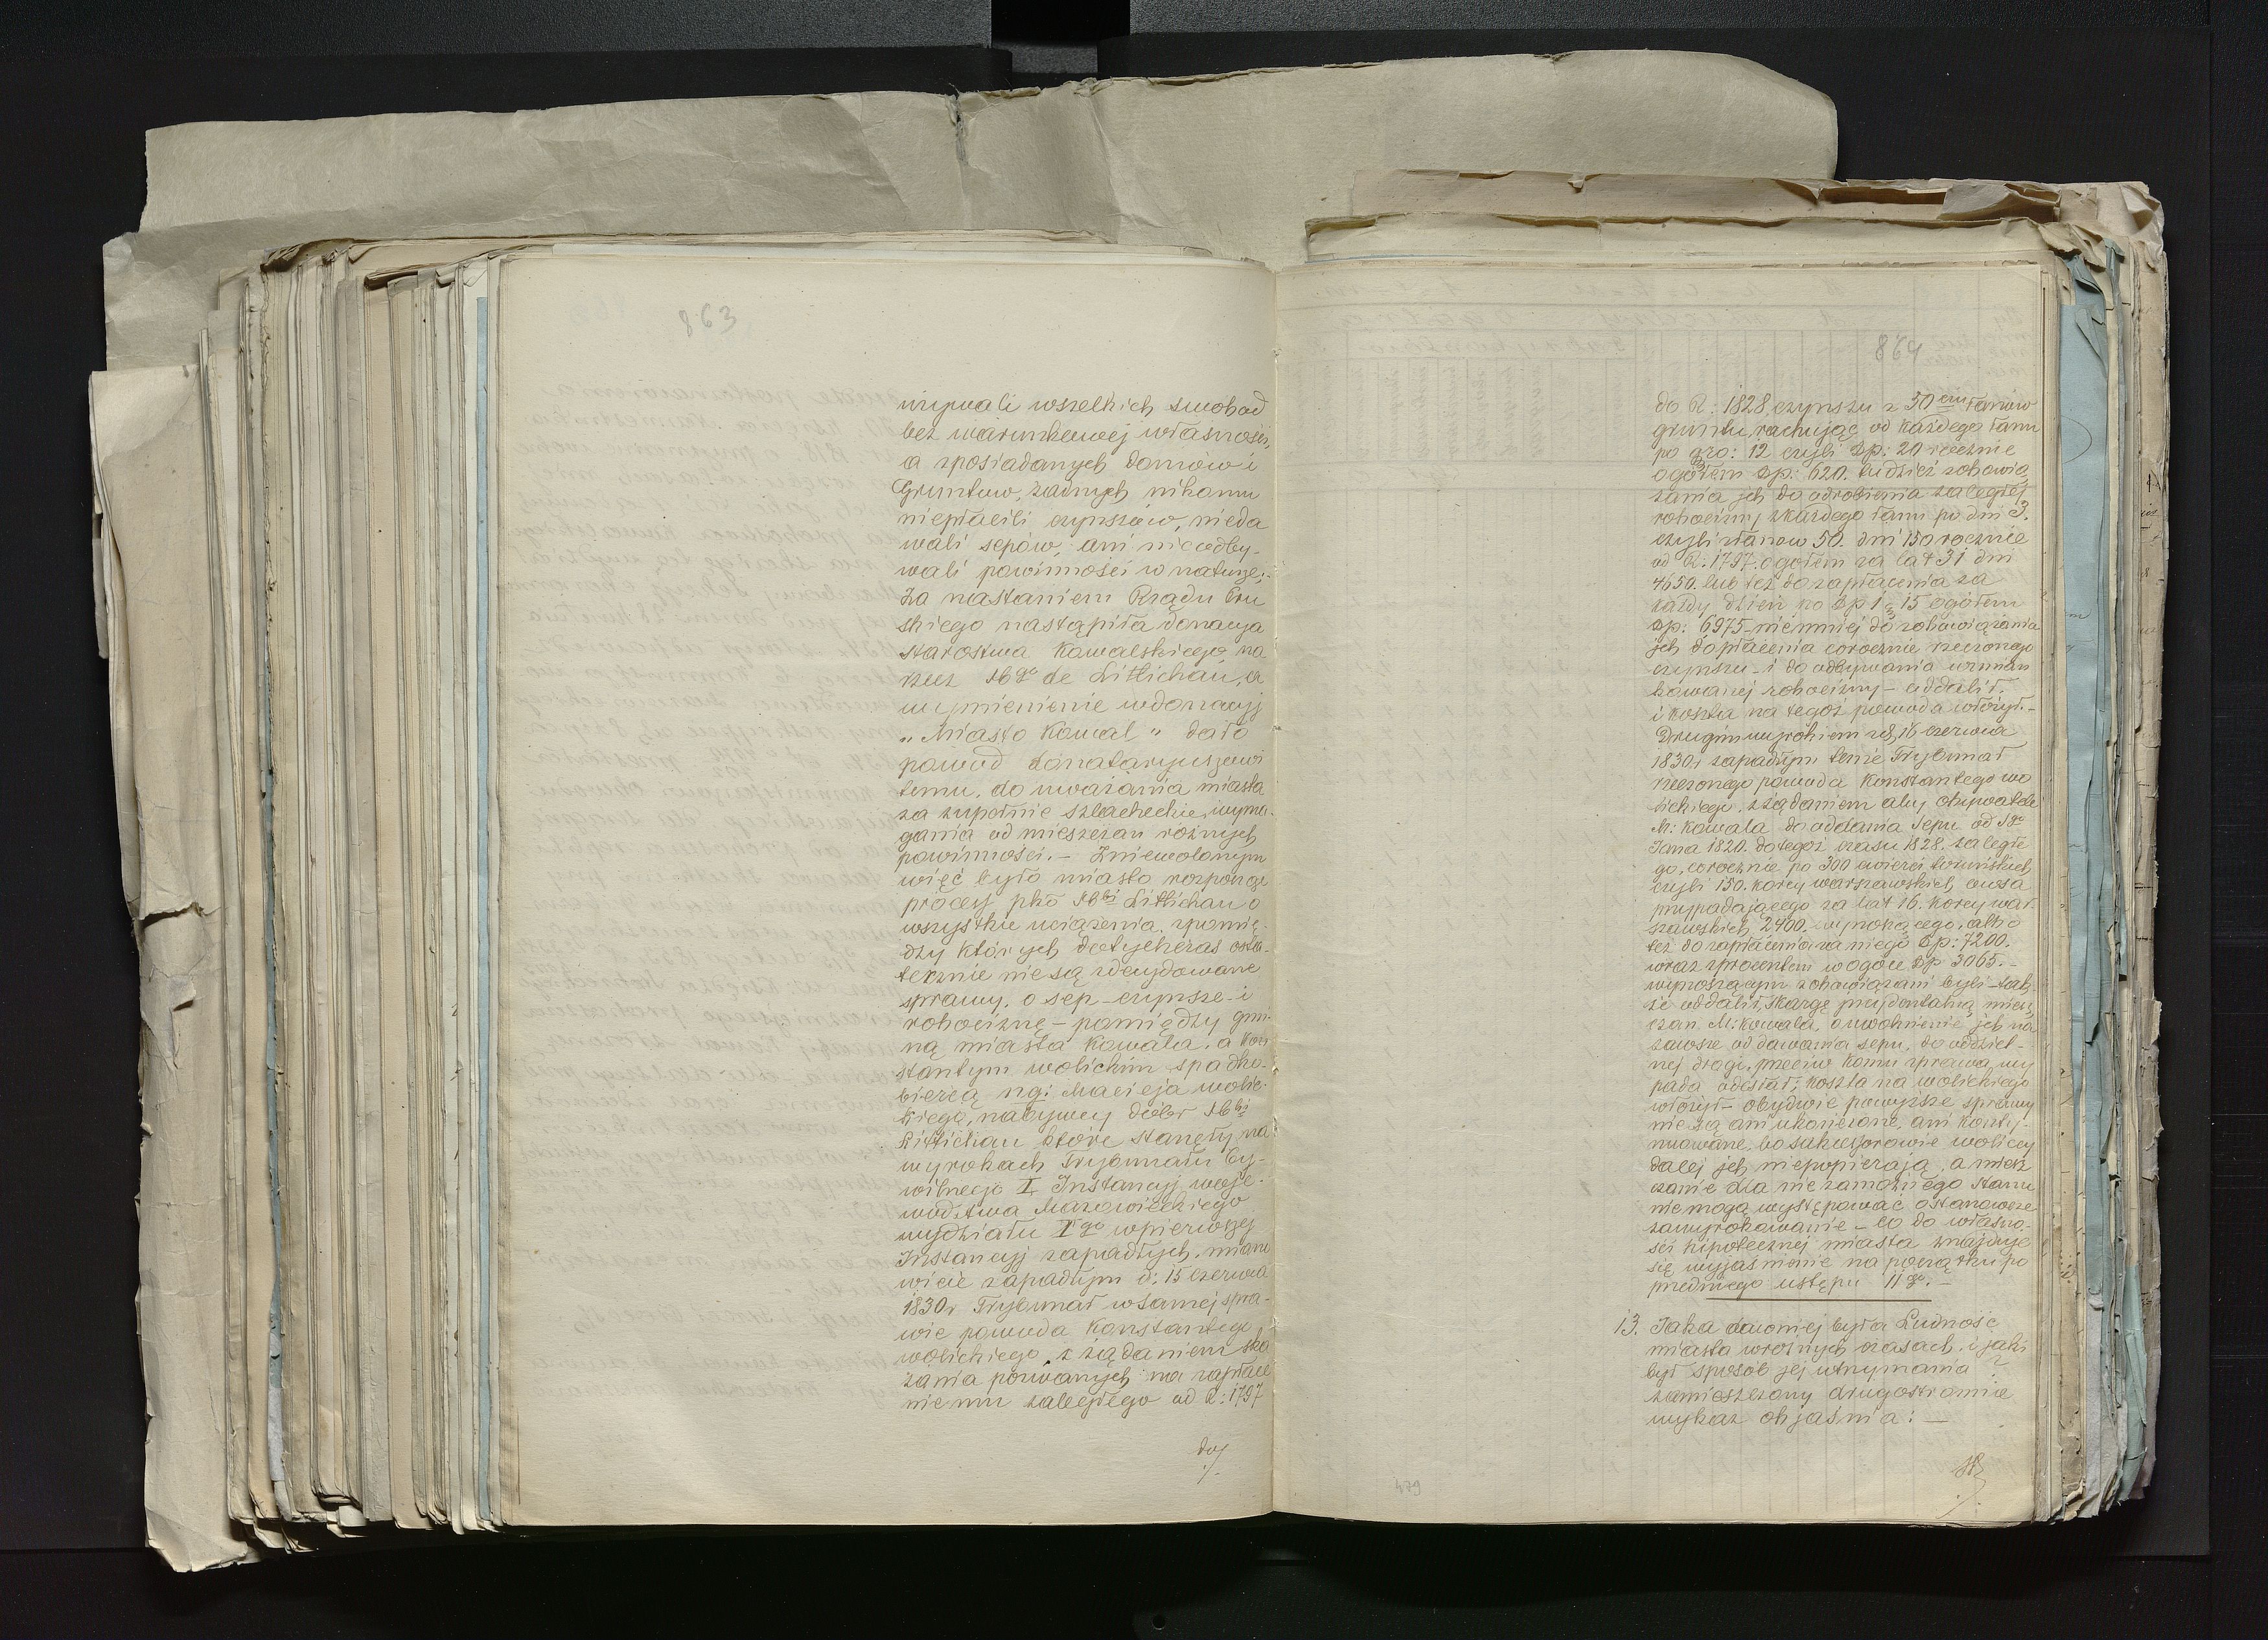 863
używali wszelkich swobod
bez warunkowej własności,
a zposiadanych domów i
Gruntow, żadnych nikomu
niepłacili czynszów, nieda
wali sepów, ani nieodby-
wali powinności w naturze;-
Za nastaniem Rządu Pru
skiego nastąpiła donacya
starostwa Kowalskiego na
rzecz Hbgo de Littichau, a
wymienienie wdonacyj
„Miasto Kowal" dało
powód donataryuszowi
temu, do uważania miasta
za zupełnie szlacheckie, i wyma-
gania od mieszczan rożnych
powinności. - Zniewolonym
więć było miasto rozpocząć
procey pko Hbi Littichau o
wszystkie uciążenia, zpomię-
dzy których dotychczas osta-
tecznie nie są zdecydowane
sprawy, o sep - czynsze - i
robociznę - pomiędzy gmi-
ną miasta Kowala, a Kon
stantym wolickim spadko-
biercą ng: Macieja wolic-
kiego, nabywcy dóbr Hbi
Littichau które stanęły na
wyrokach Trybunału Cy-
wilnego I Instancyj woje-
wodztwa Mazowieckiego
wydziału Igo wpierwszej
Instancyj zapadłych, miano
wicie zapadłym d: 15 czerwca
1830 r Trybunał wsamej spra-
wie powoda Konstantego
wolickiego, z żądaniem ska
zania pozwanych na zapłace
nie mu zaległego od R: 1797
do/
./.
864
do R: 1828, czynszu z 50ciu łanów
gruntu, rachując od każdego łanu
po zło: 12 czyli Zp: 20 rocznie
ogółem Zp: 620. tudzież zobowią
zania jch do odrobienia zaległej
robocizny zkażdego łanu po dni 3.
czyli złanow 50. dni 150 rocznie
od R: 1797. ogołem za lat 31 dni
4650. lub też do zapłacenia za
każdy dzień po Zp 1 g 15 ogółem
Zp: 6975 - niemniej do zobowiązania
jch do płacenia corocznie rzeczonego
czynszu - i do odbywania wzmian
kowanej robocizny - oddalił.
i koszta na tegoż powoda włożył. -
Drugim wyrokiem zdz 16 czerwca
1830 r zapadłym tenże Trybunał
rzeczonego powoda Konstantego wo
lickiego, zżądaniem aby obywatele
M: Kowala do oddania sepu od 1go
Juna 1820. do tegoż czasu 1828. zaległe
go, corocznie po 300 ćwierci toruńskich
czyli 150. korcy warszawskich owsa
przypadającego za lat 16. korcy war
szawskich 2400. wynoszącego, albo
też do zapłacenia za niego Zp: 7200.
wraz zprocentem wogóle Zp 3065. -
wynoszącym zobowiązani byli - tak
że oddalił, skargę przydontalną miesz
czan M: Kowala, o uwolnienie jch na
zawsze od dawania sepu, do oddziel-
nej drogi, przeciw komu zprawa wy
pada odesłał; koszta na wolickiego
włożył - obydwie powyższe sprawy
nie są ani ukończone, ani konty-
nuowane, bo sukcessorowie woliccy
dalej jch niepopierają, a miesz
czanie dla nie zamożnego stanu
nie mogą występować o stanowcze
zawyrokowanie - co do własno-
ści hipotecznej miasta znajduje
się wyjaśnienie na początku po
przedniego ustępu 11go. -
13. Jaka dawniej była Ludność
miasta wrożnych czasach, i jaki
był sposób jej utrzymania ?
zamieszczony drugostronnie
wykaz objaśnia: -
479